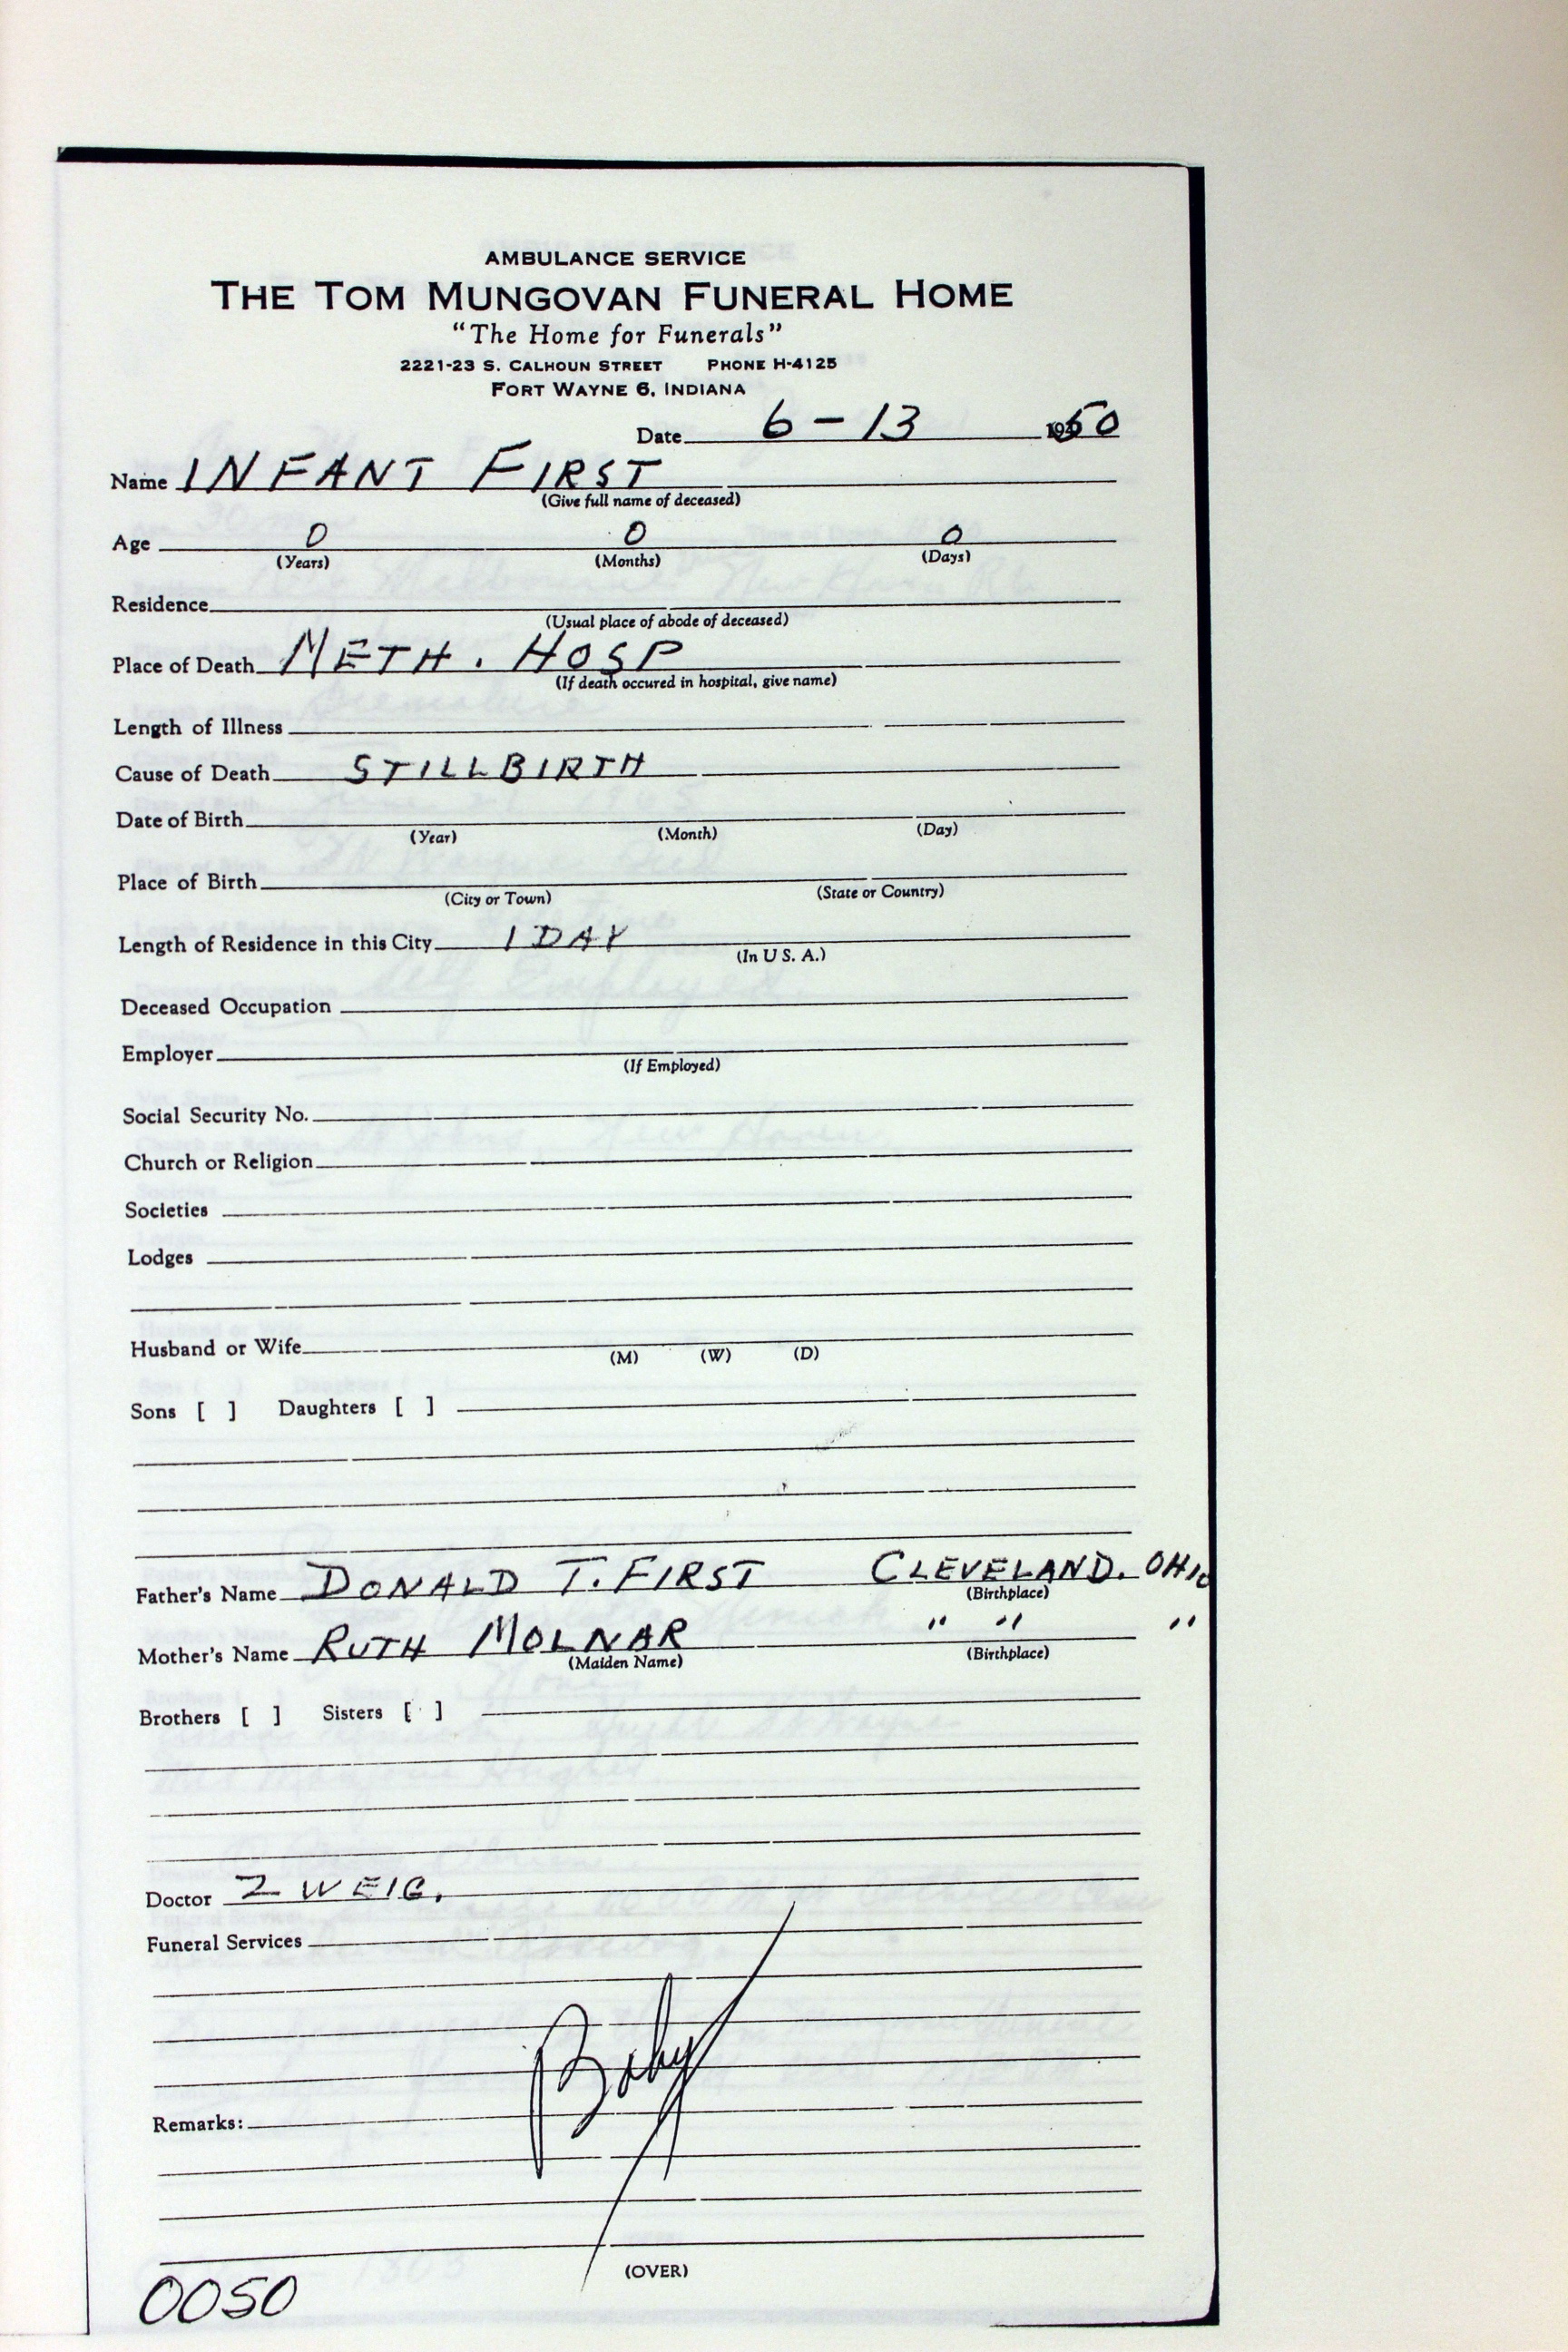 AMBULANCE SERVICE
THE TOM MUNGOVAN FUNERAL HOME
"The Home for Funerals"
2221-23 S. CALHOUN STREET PHONE H-4125
FORT WAYNE 6, INDIANA
Date 6-13 1960
Name INFANT FIRST
(Give full name of deceased)
Age 0 0 0
(Years) (Months) (Days)
Residence
(Usual place of abode of deceased)
Place of Death METH. HOSP
(If death occured in hospital, give name)
Length of Illness
Cause of Death STILLBIRTH
Date of Birth
(Year) (Month) (Day)
Place of Birth
(City or Town) (State or Country)
Length of Residence in this City 1 DAY
(In U S. A.)
Deceased Occupation
Employer
(If Employed)
Social Security No.
Church or Religion
Societies
Lodges
Husband or Wife
(M) (W) (D)
Sons [ ] Daughters [ ]
Father's Name DONALD T. FIRST CLEVELAND. OHIO
(Birthplace)
Mother's Name RUTH MOLNAR " " "
(Maiden Name) (Birthplace)
Brothers [ ] Sisters [ ]
Doctor ZWEIG.
Funeral Services
Baby
Remarks:
(OVER)
0050